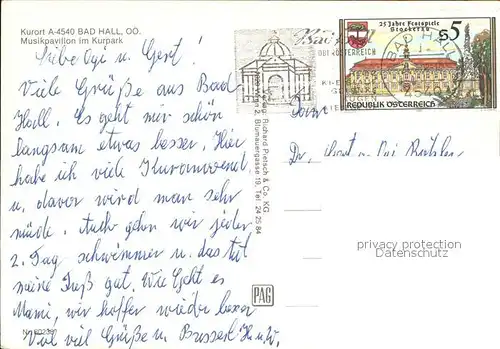 Kurort A-4540 BAD HALL, OÖ.
Musikpavillon im Kurpark
Liebe Ogi u. Gert!
Viele Grüße aus Bad
Hall. Es geht mir schön
langsam etwas besser. Hier
habe ich viele
u. davon wird man sehr
müde. Auch gehn wir jeden
2. Tag schwimmen u. das tut
meine Fuß gut. Wie geht es
Mami, wir hoffen wieder besser
Viel viel Grüße u. Busserl
25 Jahre Festspiele
Stockerau
S5
REPUBLIK ÖSTERREICH
BAD HALL
Verlag: Richard Pietsch & Co. KG.
Wien 2, Blumauergasse 19, Tel. 24 25 84
Dr.
privacy protection
Datenschutz
PAG